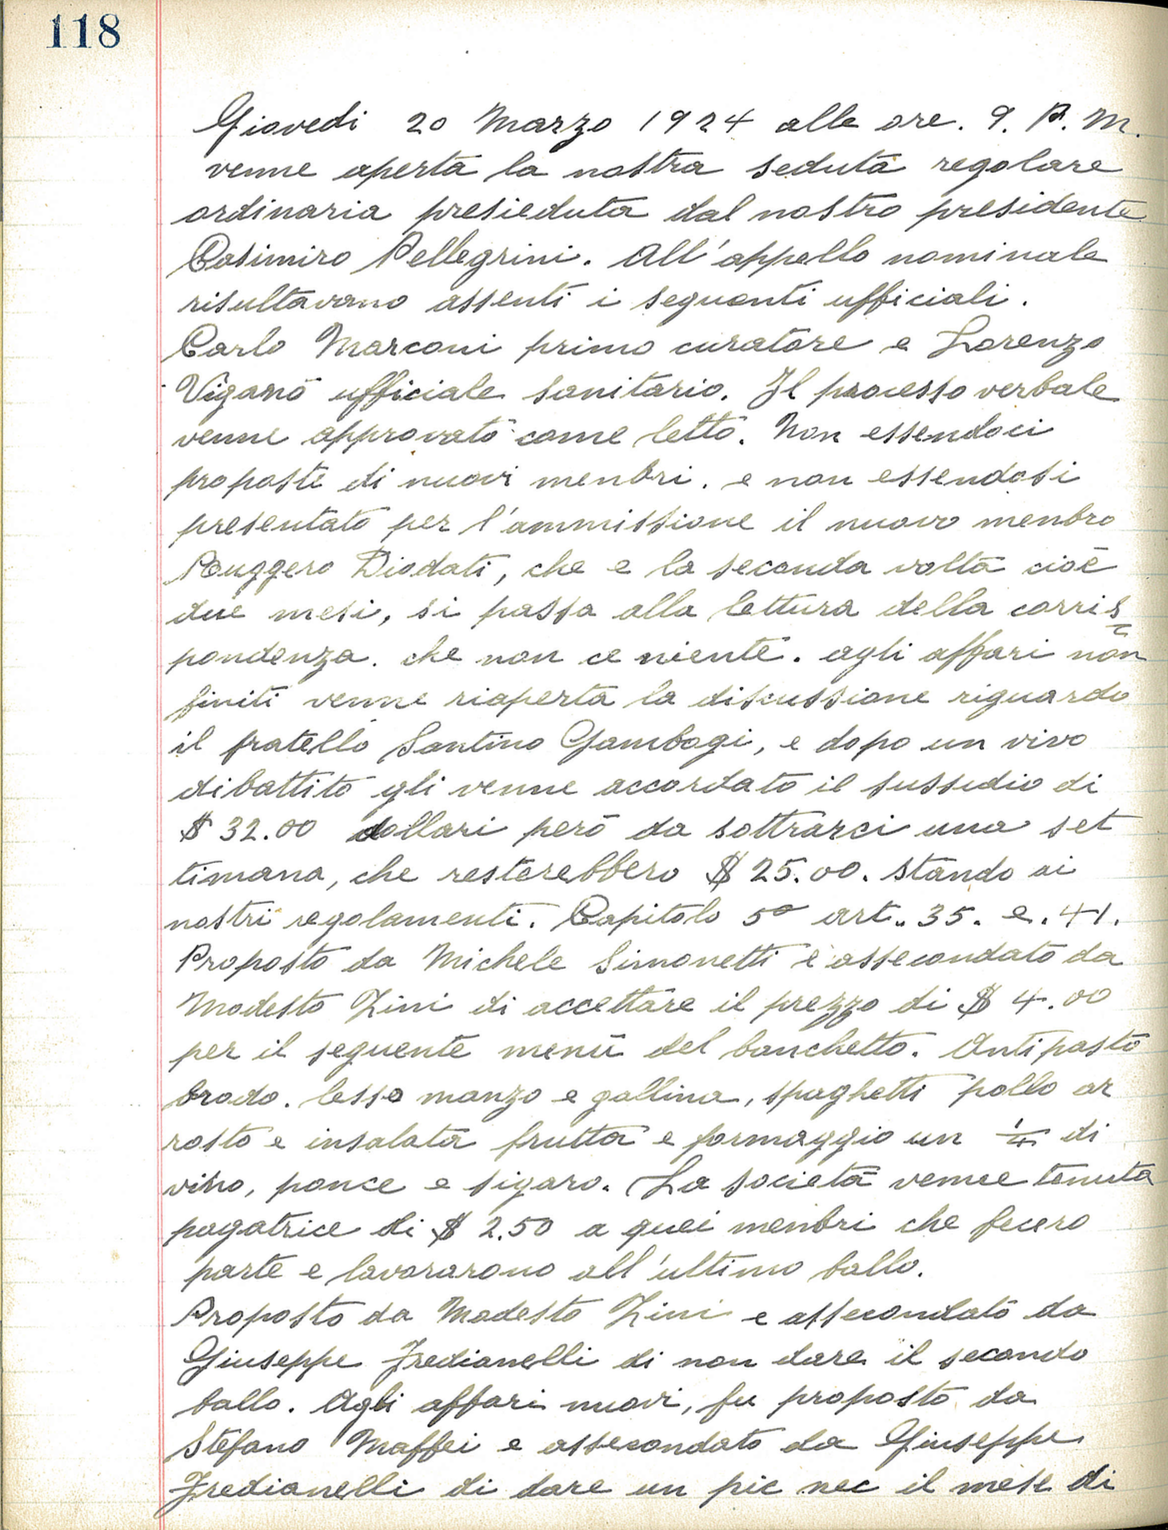 118
Giovedi 20 Marzo 1924 alle ore. 9. P. M.
venne aperta la nostra seduta regolare
ordinaria presieduta dal nostro presidente
Casimiro Pellegrini. All'appello nominale
risultavano assenti i seguenti ufficiali.
Carlo Marconi primo curatore e Lorenzo
Viganò ufficiale sanitario. Il processo verbale
venne approvato come letto. Non essendoci
proposte di nuovi menbri. e non essendosi
presentato per l'ammissione il nuovo menbro
Ruggero Diodati, che e la seconda volta cioè
due mesi, si passa alla lettura della corris=
pondenza. che non ce niente. agli affari non
finiti venne riaperta la discussione riguardo
il fratello Santino Gambogi, e dopo un vivo
dibattito gli venne accordato il sussidio di
$ 32.00 dollari però da sottrarci una set
timana, che resterebbero $ 25.00. stando ai
nostri regolamenti. Capitolo 5º art.. 35. e. 41.
Proposto da Michele Simonetti e assecondato da
Modesto Zini di accettare il prezzo di $ 4.00
per il seguente menù del banchetto. Antipasto
brodo. lesso manzo e gallina, spaghetti pollo ar
rosto e insalata frutta e formaggio un 1/4 di
vino, ponce e sigaro. La società venne tenuta
pagatrice di $ 2.50 a quei menbri che fecero
parte e lavorarono all'ultimo ballo.
Proposto da Modesto Zini e assecondato da
Giuseppe Fredianelli di non dare il secondo
ballo. Agli affari nuovi, fu proposto da
Stefano Maffei e assecondato da Giuseppe
Fredianelli di dare un pic nec il mese di